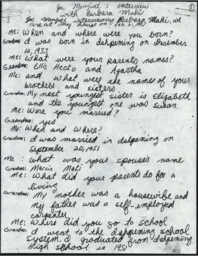 Joe Mongiat's Interview
with Barbara Maki
Joe Mongiat interviewing Barbara Maki, at
Me: When and where were you born?
Grandma: I was born in Ishpeming on December
16, 1933
Me: What were your parents names?
Grandma: Ellis Maata and Agatha
Me: and What were the names of your
brothers and sisters
Grandma: My most youngest sister is Elizabeth
and the youngest one was Susan.
Me: Were you married?
Grandma: yes
Me: When and Where?
Grandma: I was married in Ishpeming on
September 1951
Me: What was your spouses name
Grandma: Marvin Maki
Me: What did your parents do for a
living
Grandma: My mother was a housewife and
my father was a self-employed
carpenter
Me: Where did you go to school
Grandma: I went to the Ishpeming school
system. I graduated from Ishpeming
High School in 1951